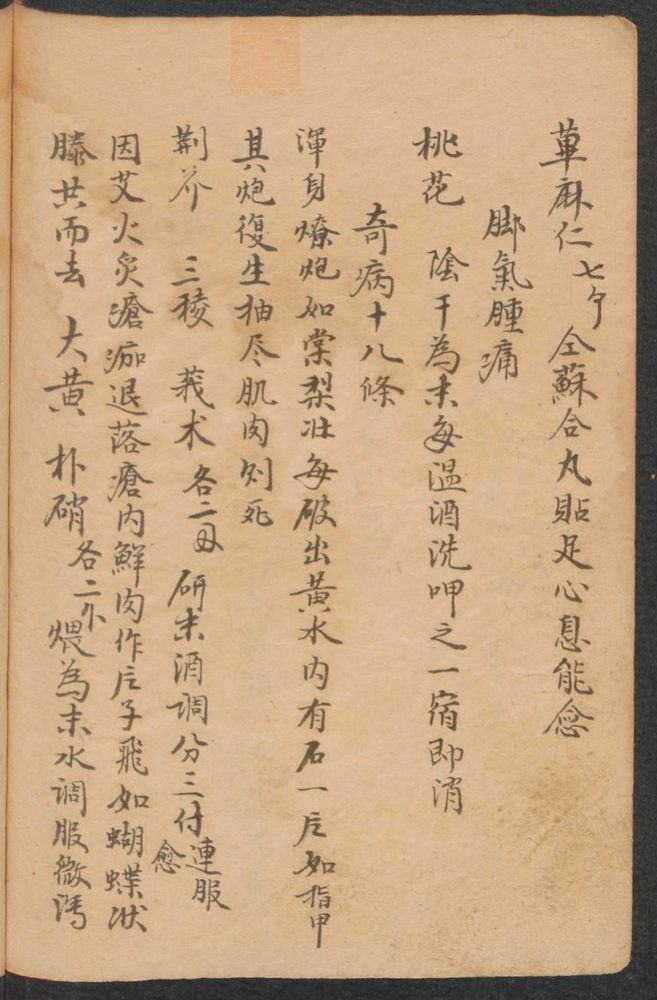 萆麻仁 七个 仝蘇合丸貼足心息能愈
脚氣腫痛
桃花 陰干為末每温酒洗呷之一宿即消
奇病十八條
渾身燎炮如棠梨壮每破出黄水内有石一片如指甲
其炮復生抽尽肌肉则死
荆芥 三稜 莪术 各二 研末酒调分三付連服愈
因艾火灸瘡痂退落瘡内鮮肉作片子飛如蝴蝶状
騰共而去 大黄 朴硝 各二 煨為末水调服微